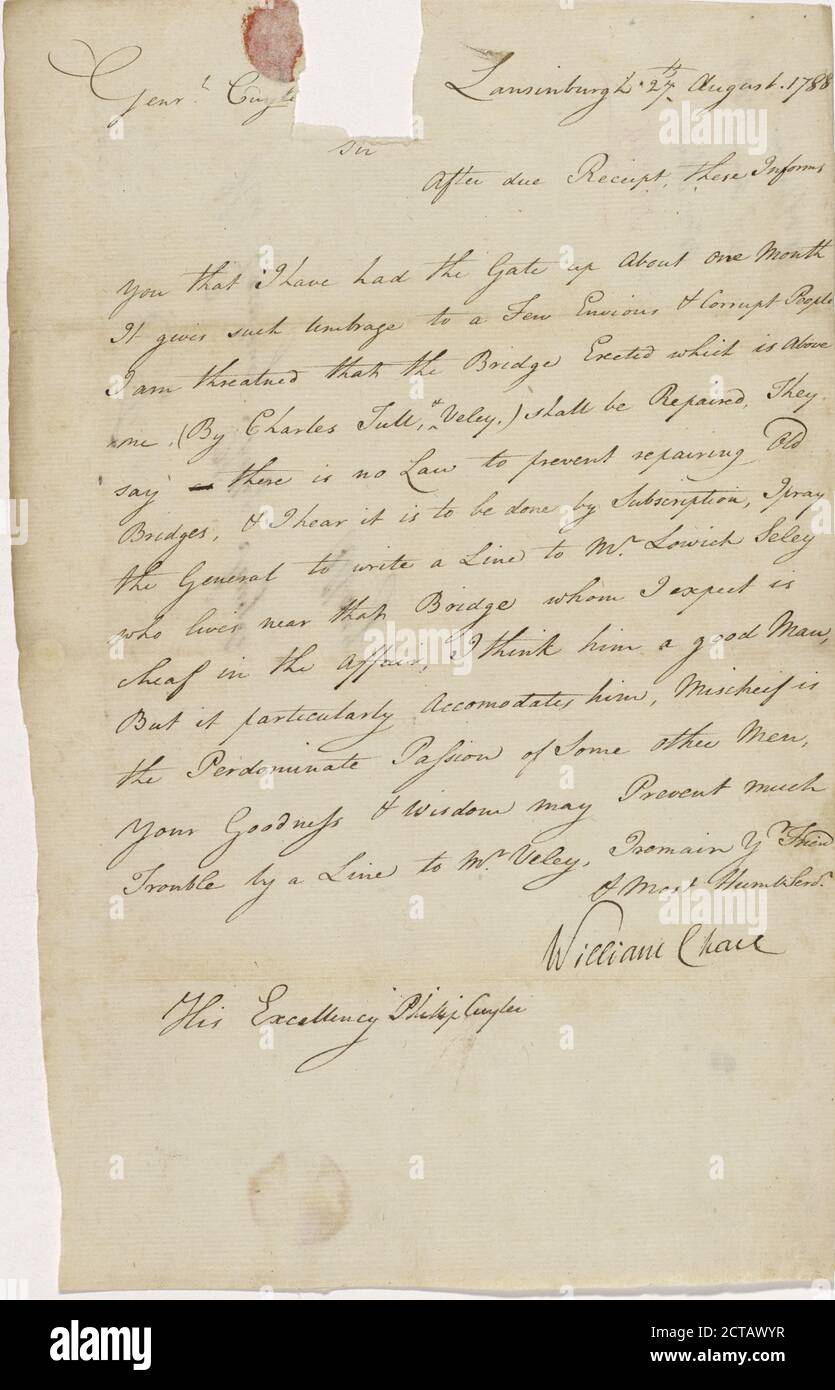 Genr.l Cuyle
Lansinburgh 27th August. 1788
Sir
After due Receipt, these Informs
you that I have had the Gate up About one Month
It gives such umbrage to a Few Envious & Corrupt People
I am threatned that the Bridge Erected which is Above
me, (By Charles Tutt, & Veley,) shall be Repaired, They
say there is no Law to prevent repairing Old
Bridges, & I hear it is to be done by Subscription, I pray
the General to write a Line to Mr. Lowich Seley
who lives near that Bridge whom I expect is
cheaf in the Affair, I think him a good Man,
But it particularly Accomodates him, Mischeif is
the Perdominate Passion of Some other Men,
Your Goodness & Wisdom may Prevent much
Trouble by a Line to Mr. Veley, I remain Yr. Friend
& Most Humb Serd.
William Chace
His Excellency Philip Cuyler
a alamy
alamy
Image ID: 2CTAWYR
www.alamy.com